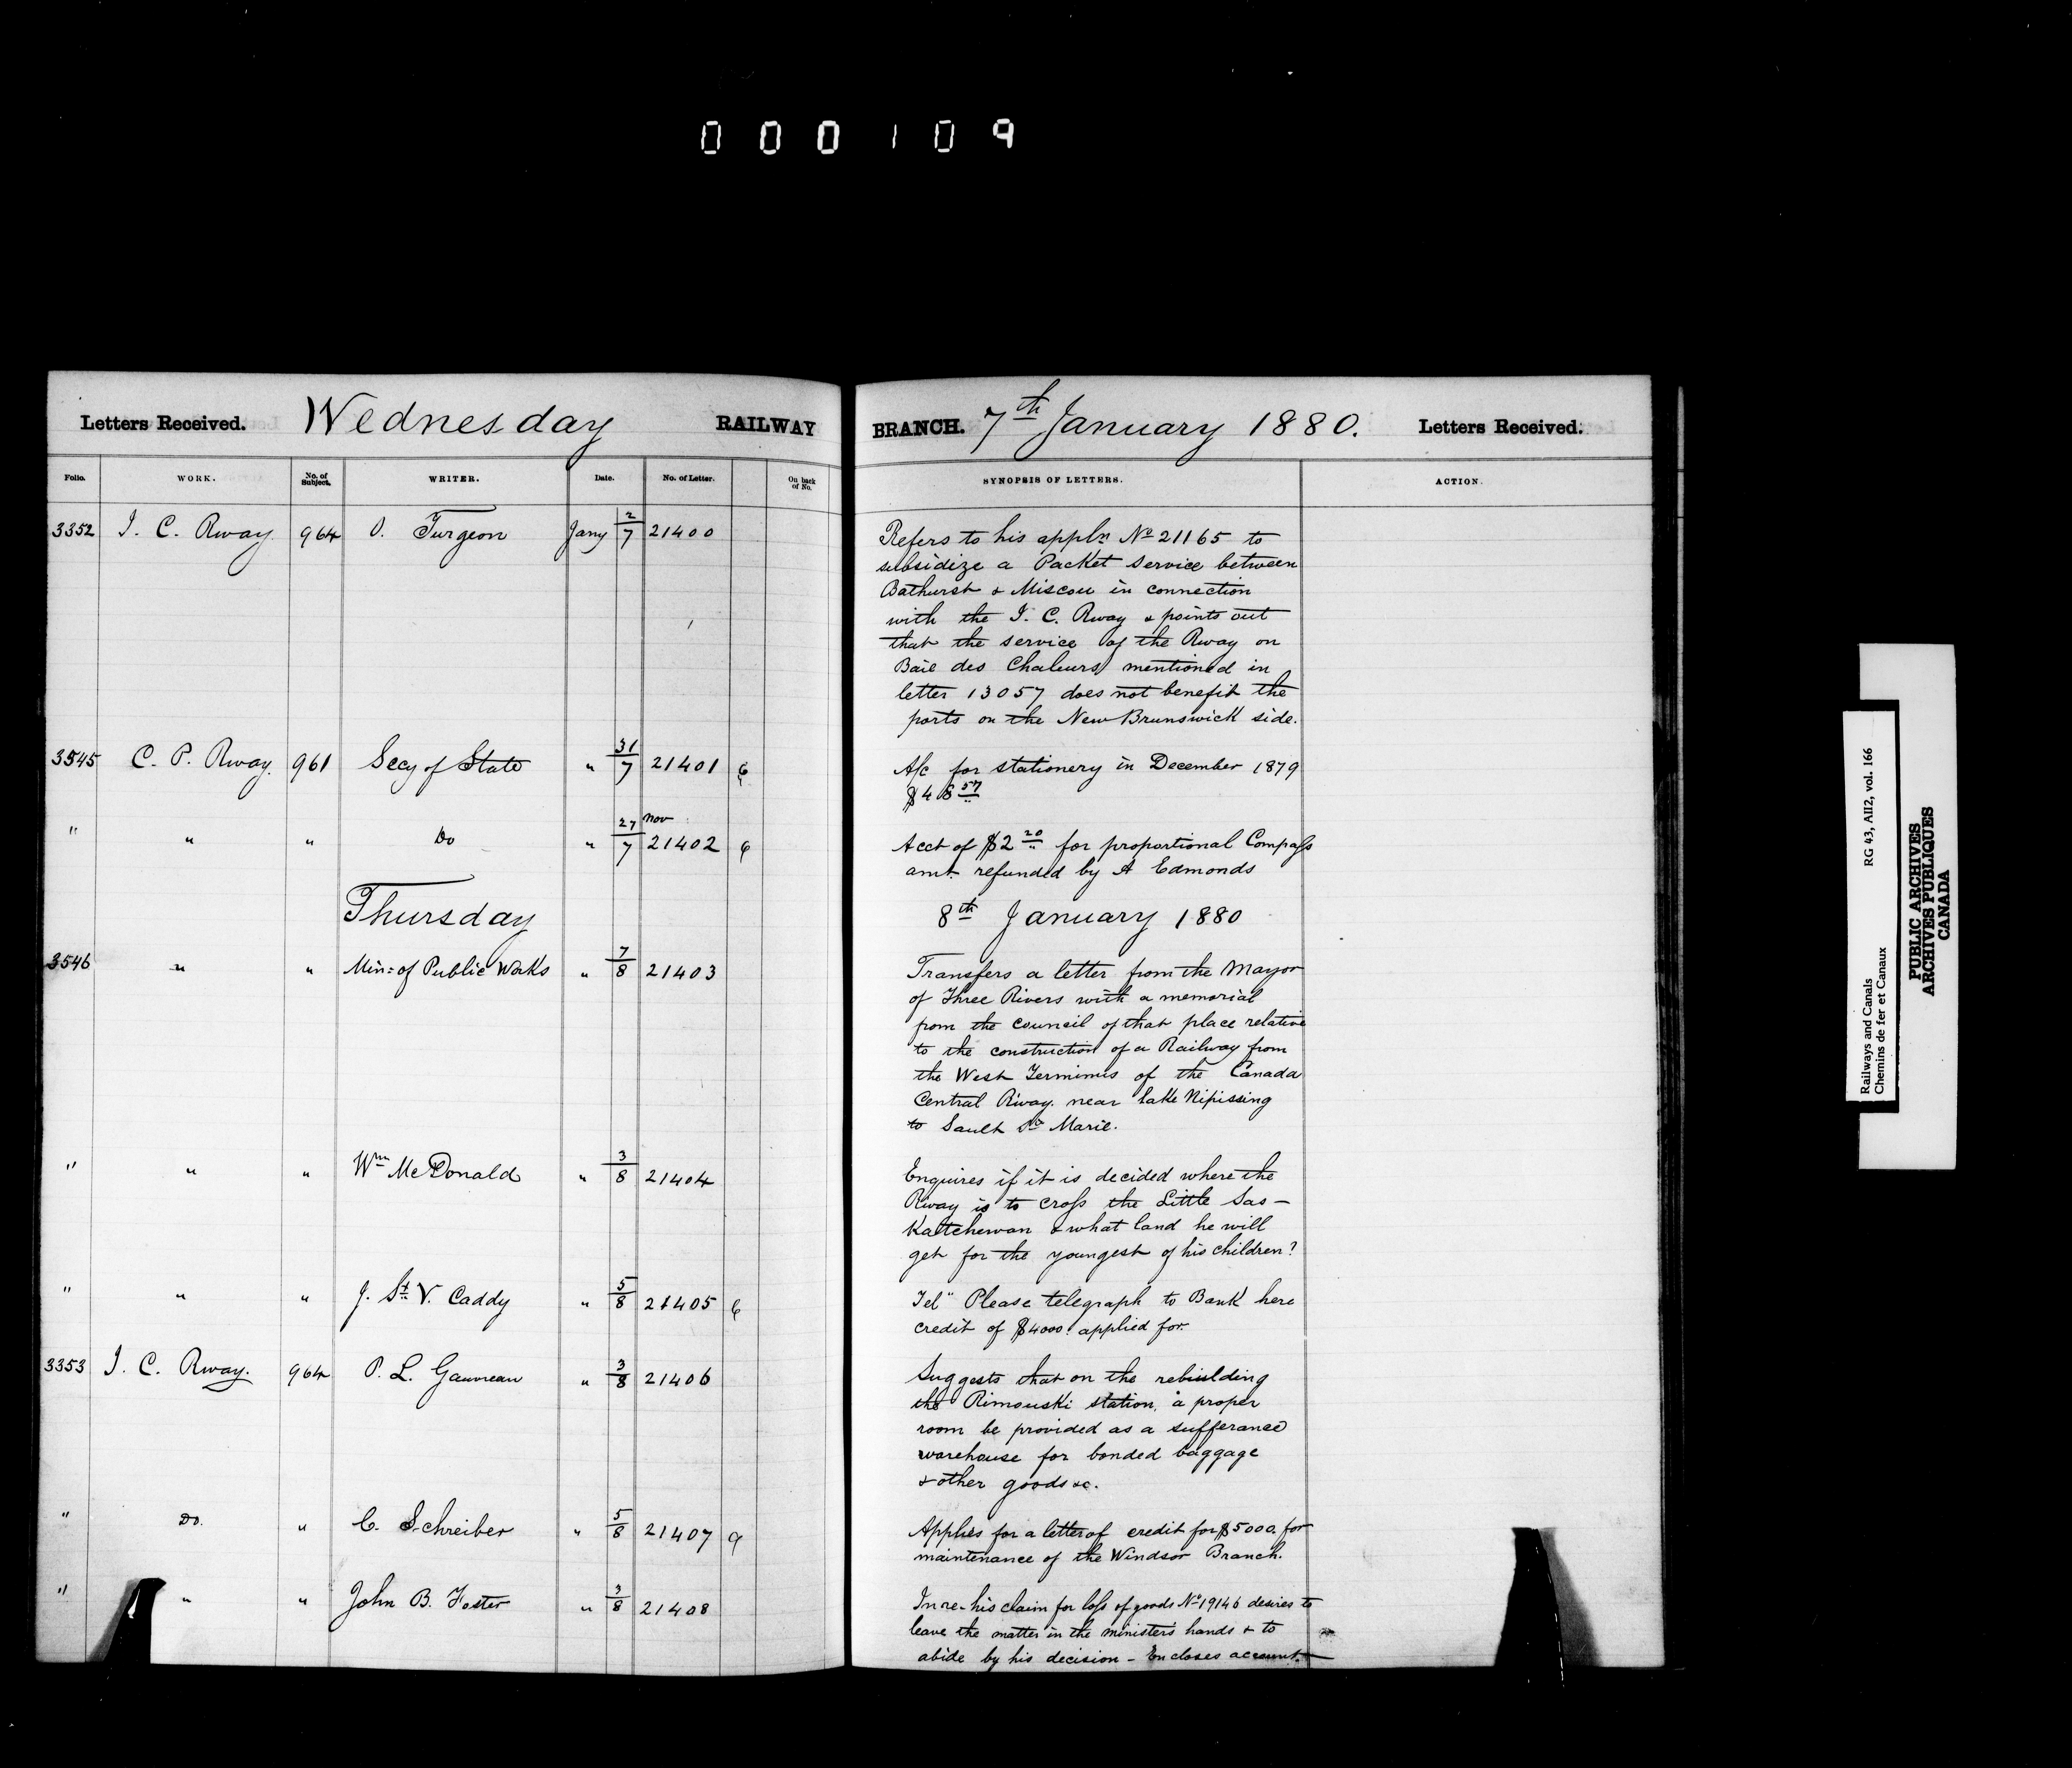 000109
Letters Received. Wednesday RAILWAY BRANCH. 7th January 1880. Letters Received.
Folio. WORK. No. of Subject. WRITER. Date. No. of Letter. On back of No. SYNOPSIS OF LETTERS. ACTION.
3352 I. C. Rway. 964 O. Turgeon Jany 2/7 21400 Refers to his appln No 21165 to
subsidize a Packet service between
Bathurst & Miscou in connection
with the I. C. Rway & points out
that the service of the Rway on
Baie des Chaleurs mentioned in
letter 13057 does not benefit the
ports on the New Brunswick side.
3545 C. P. Rway. 961 Secy of State " 31/7 21401 6 A/c for stationery in December 1879
$48 57
" " " Do " 27 Nov/7 21402 6 Acct of $2 20 for proportional Compass
amt. refunded by A Edmonds
Thursday 8th January 1880
3546 " " Min: of Public Works " 7/8 21403 Transfers a letter from the Mayor
of Three Rivers with a memorial
from the council of that place relative
to the construction of a Railway from
the West Terminus of the Canada
Central R'way. near Lake Nipissing
to Sault Ste Marie.
" " " Wm McDonald " 3/8 21404 Enquires if it is decided where the
Rway is to cross the Little Sas-
Kattchewan & what land he will
get for the youngest of his children?
" " " J. St V. Caddy " 5/8 21405 6 Tel" Please telegraph to Bank here
credit of $4000. applied for.
3353 I. C. Rway. 964 P. L. Gauvreau " 3/8 21406 Suggests that on the rebuilding
the Rimouski station, a proper
room be provided as a sufferance
warehouse for bonded baggage
& other goods &c.
" Do. " C. Schreiber " 5/8 21407 9 Applies for a letter of credit for $5000. for
maintenance of the Windsor Branch.
" " " John B. Foster " 3/8 21408 In re- his claim for loss of goods No 19146 desires to
leave the matter in the ministers hands & to
abide by his decision - Encloses account.
Railways and Canals RG 43, AII2, vol. 166
Chemins de fer et Canaux
PUBLIC ARCHIVES
ARCHIVES PUBLIQUES
CANADA